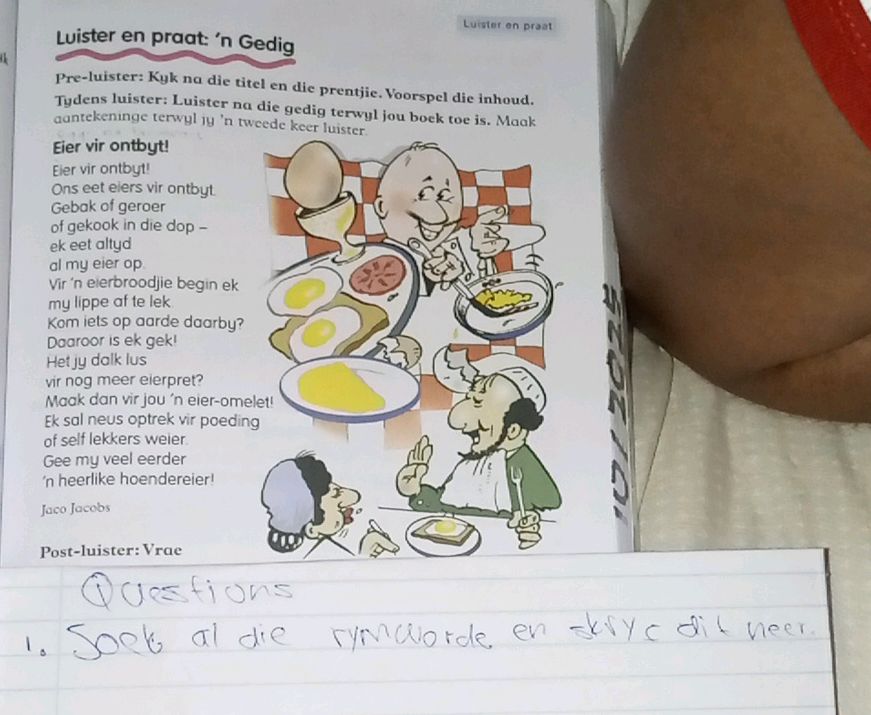 Luister en praat
Luister en praat: 'n Gedig
Pre-luister: Kyk na die titel en die prentjie. Voorspel die inhoud.
Tydens luister: Luister na die gedig terwyl jou boek toe is. Maak
aantekeninge terwyl jy 'n tweede keer luister.
Eier vir ontbyt!
Eier vir ontbyt!
Ons eet eiers vir ontbyt.
Gebak of geroer
of gekook in die dop –
ek eet altyd
al my eier op.
Vir 'n eierbroodjie begin ek
my lippe af te lek.
Kom iets op aarde daarby?
Daaroor is ek gek!
Het jy dalk lus
vir nog meer eierpret?
Maak dan vir jou 'n eier-omelet!
Ek sal neus optrek vir poeding
of self lekkers weier.
Gee my veel eerder
'n heerlike hoendereier!
Jaco Jacobs
Post-luister: Vrae
Questions
1. Soek al die rymwoorde en skryf dit neer.